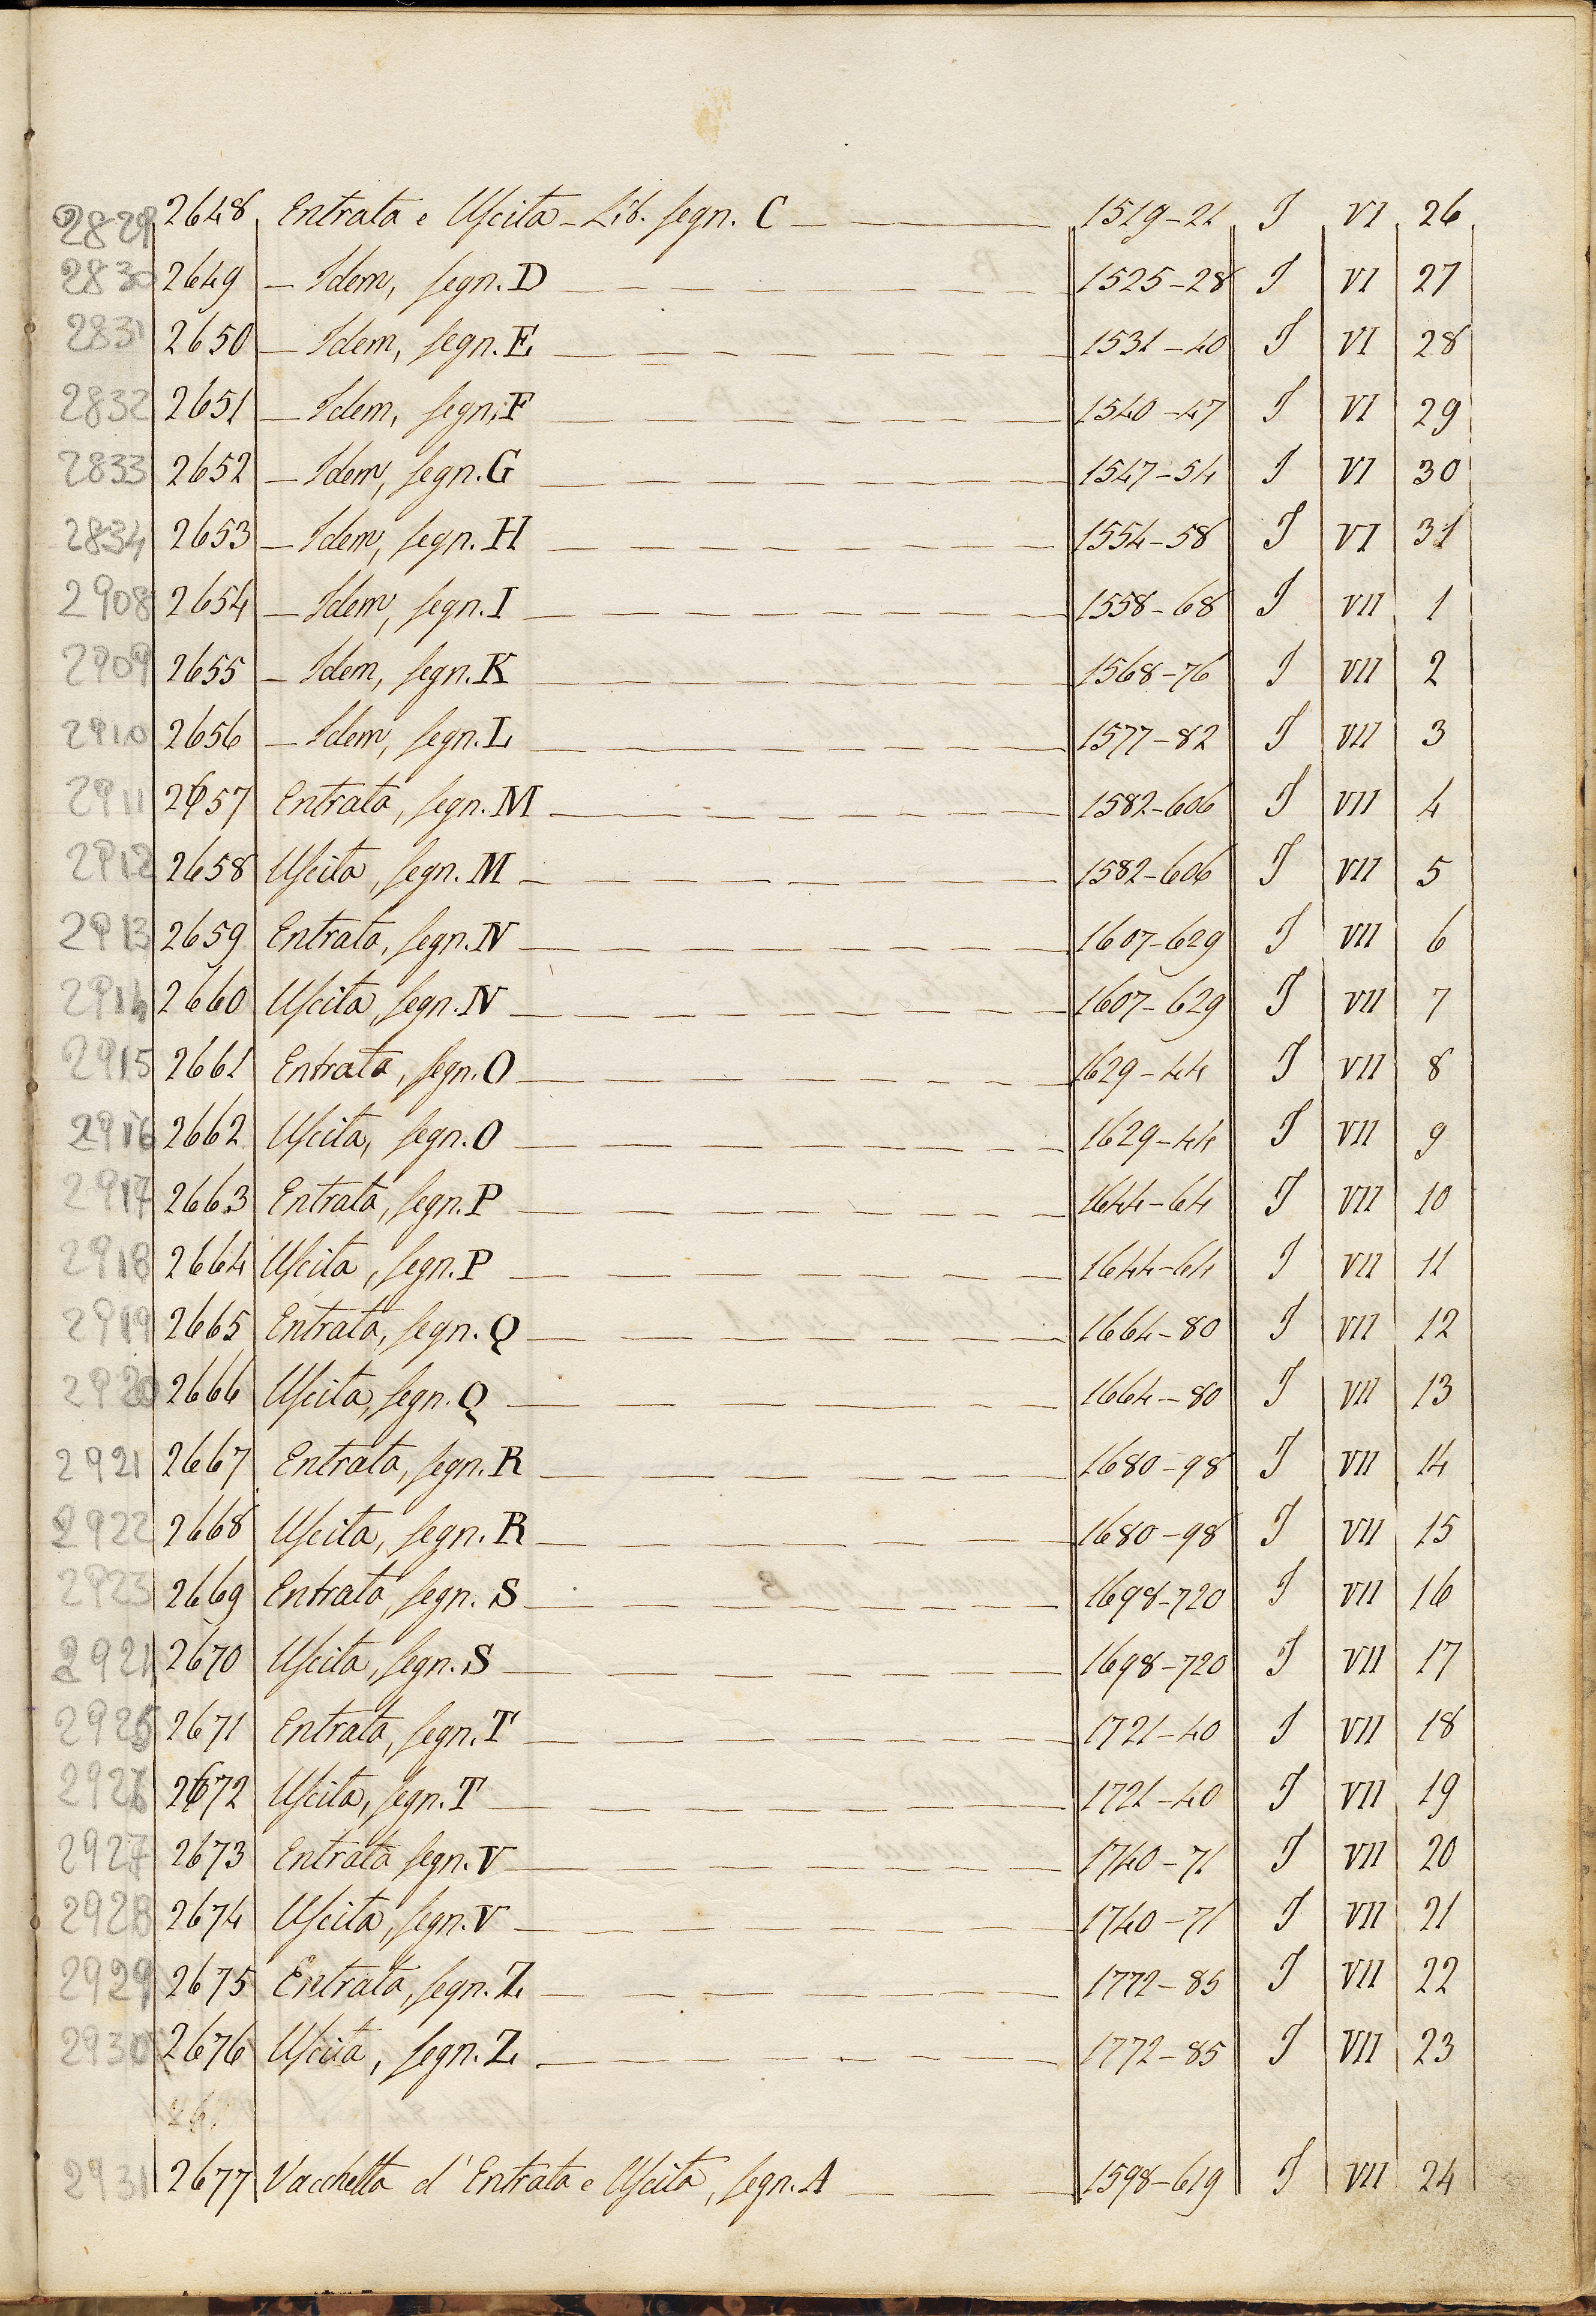 2829 2648 Entrata e Uscita - Lib. segn. C 1519-21 I VI 26
2830 2649 - Idem, segn. D 1525-28 I VI 27
2831 2650 - Idem, segn. E 1531-40 I VI 28
2832 2651 - Idem, segn. F 1540-47 I VI 29
2833 2652 - Idem, segn. G 1547-54 I VI 30
2834 2653 - Idem, segn. H 1554-58 I VI 31
2908 2654 - Idem, segn. I 1558-68 I VII 1
2909 2655 - Idem, segn. K 1568-76 I VII 2
2910 2656 - Idem, segn. L 1577-82 I VII 3
2911 2657 Entrata, segn. M 1582-606 I VII 4
2912 2658 Uscita, segn. M 1582-606 I VII 5
2913 2659 Entrata, segn. N 1607-629 I VII 6
2914 2660 Uscita, segn. N 1607-629 I VII 7
2915 2661 Entrata, segn. O 1629-44 I VII 8
2916 2662 Uscita, segn. O 1629-44 I VII 9
2917 2663 Entrata, segn. P 1644-64 I VII 10
2918 2664 Uscita, segn. P 1644-64 I VII 11
2919 2665 Entrata, segn. Q 1664-80 I VII 12
2920 2666 Uscita, segn. Q 1664-80 I VII 13
2921 2667 Entrata, segn. R 1680-98 I VII 14
2922 2668 Uscita, segn. R 1680-98 I VII 15
2923 2669 Entrata, segn. S 1698-720 I VII 16
2924 2670 Uscita, segn. S 1698-720 I VII 17
2925 2671 Entrata, segn. T 1721-40 I VII 18
2926 2672 Uscita, segn. T 1721-40 I VII 19
2927 2673 Entrata segn. V 1740-71 I VII 20
2928 2674 Uscita, segn. V 1740-71 I VII 21
2929 2675 Entrata, segn. Z 1772-85 I VII 22
2930 2676 Uscita, segn. Z 1772-85 I VII 23
2931 2677 Vacchetta d'Entrata e Uscita, segn. A 1598-619 I VII 24